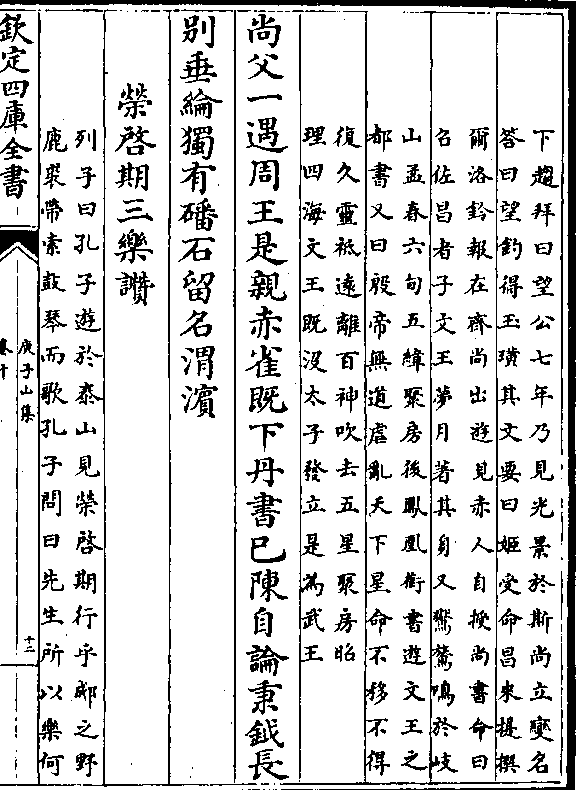 下趨拜曰望公七年乃見光景於斯尚立變名
答曰望釣得玉璜其文要曰姬受命昌來提撰
爾洛鈐報在齊尚出遊見赤人自授尚書命曰
名佐昌者子文王夢月著其身又鸑鷟鳴於岐
山孟春六旬五緯聚房後鳳凰銜書遊文王之
都書又曰殷帝無道虐亂天下星命不移不得
復久靈祇遠離百神吹去五星聚房昭
理四海文王既沒太子發立是為武王
尚父一遇周王是親赤雀既下丹書已陳自論秉鉞長
別垂綸獨有磻石留名渭濱
榮啓期三樂讚
列子曰孔子遊於泰山見榮啓期行乎郕之野
鹿裘帶索鼓琴而歌孔子問曰先生所以樂何
欽定四庫全書
庾子山集
卷十
十二